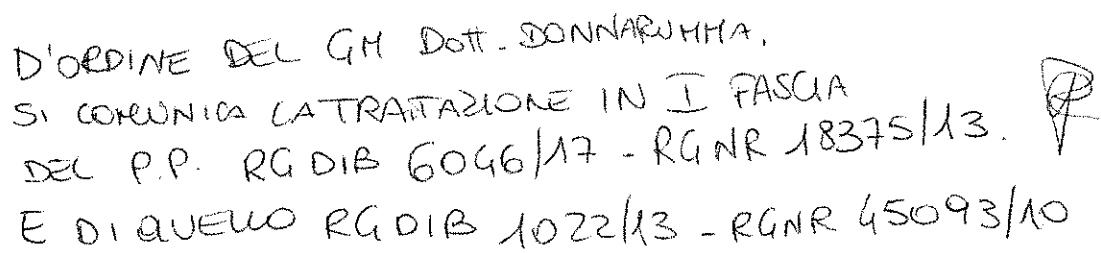 D'ORDINE DEL GM Dott. DONNARUMMA,
SI COMUNICA LA TRATTAZIONE IN I FASCIA
DEL P.P. RG DIB 6046/17 - RGNR 18375/13.
E DI QUELLO RG DIB 1022/13 - RGNR 45093/10